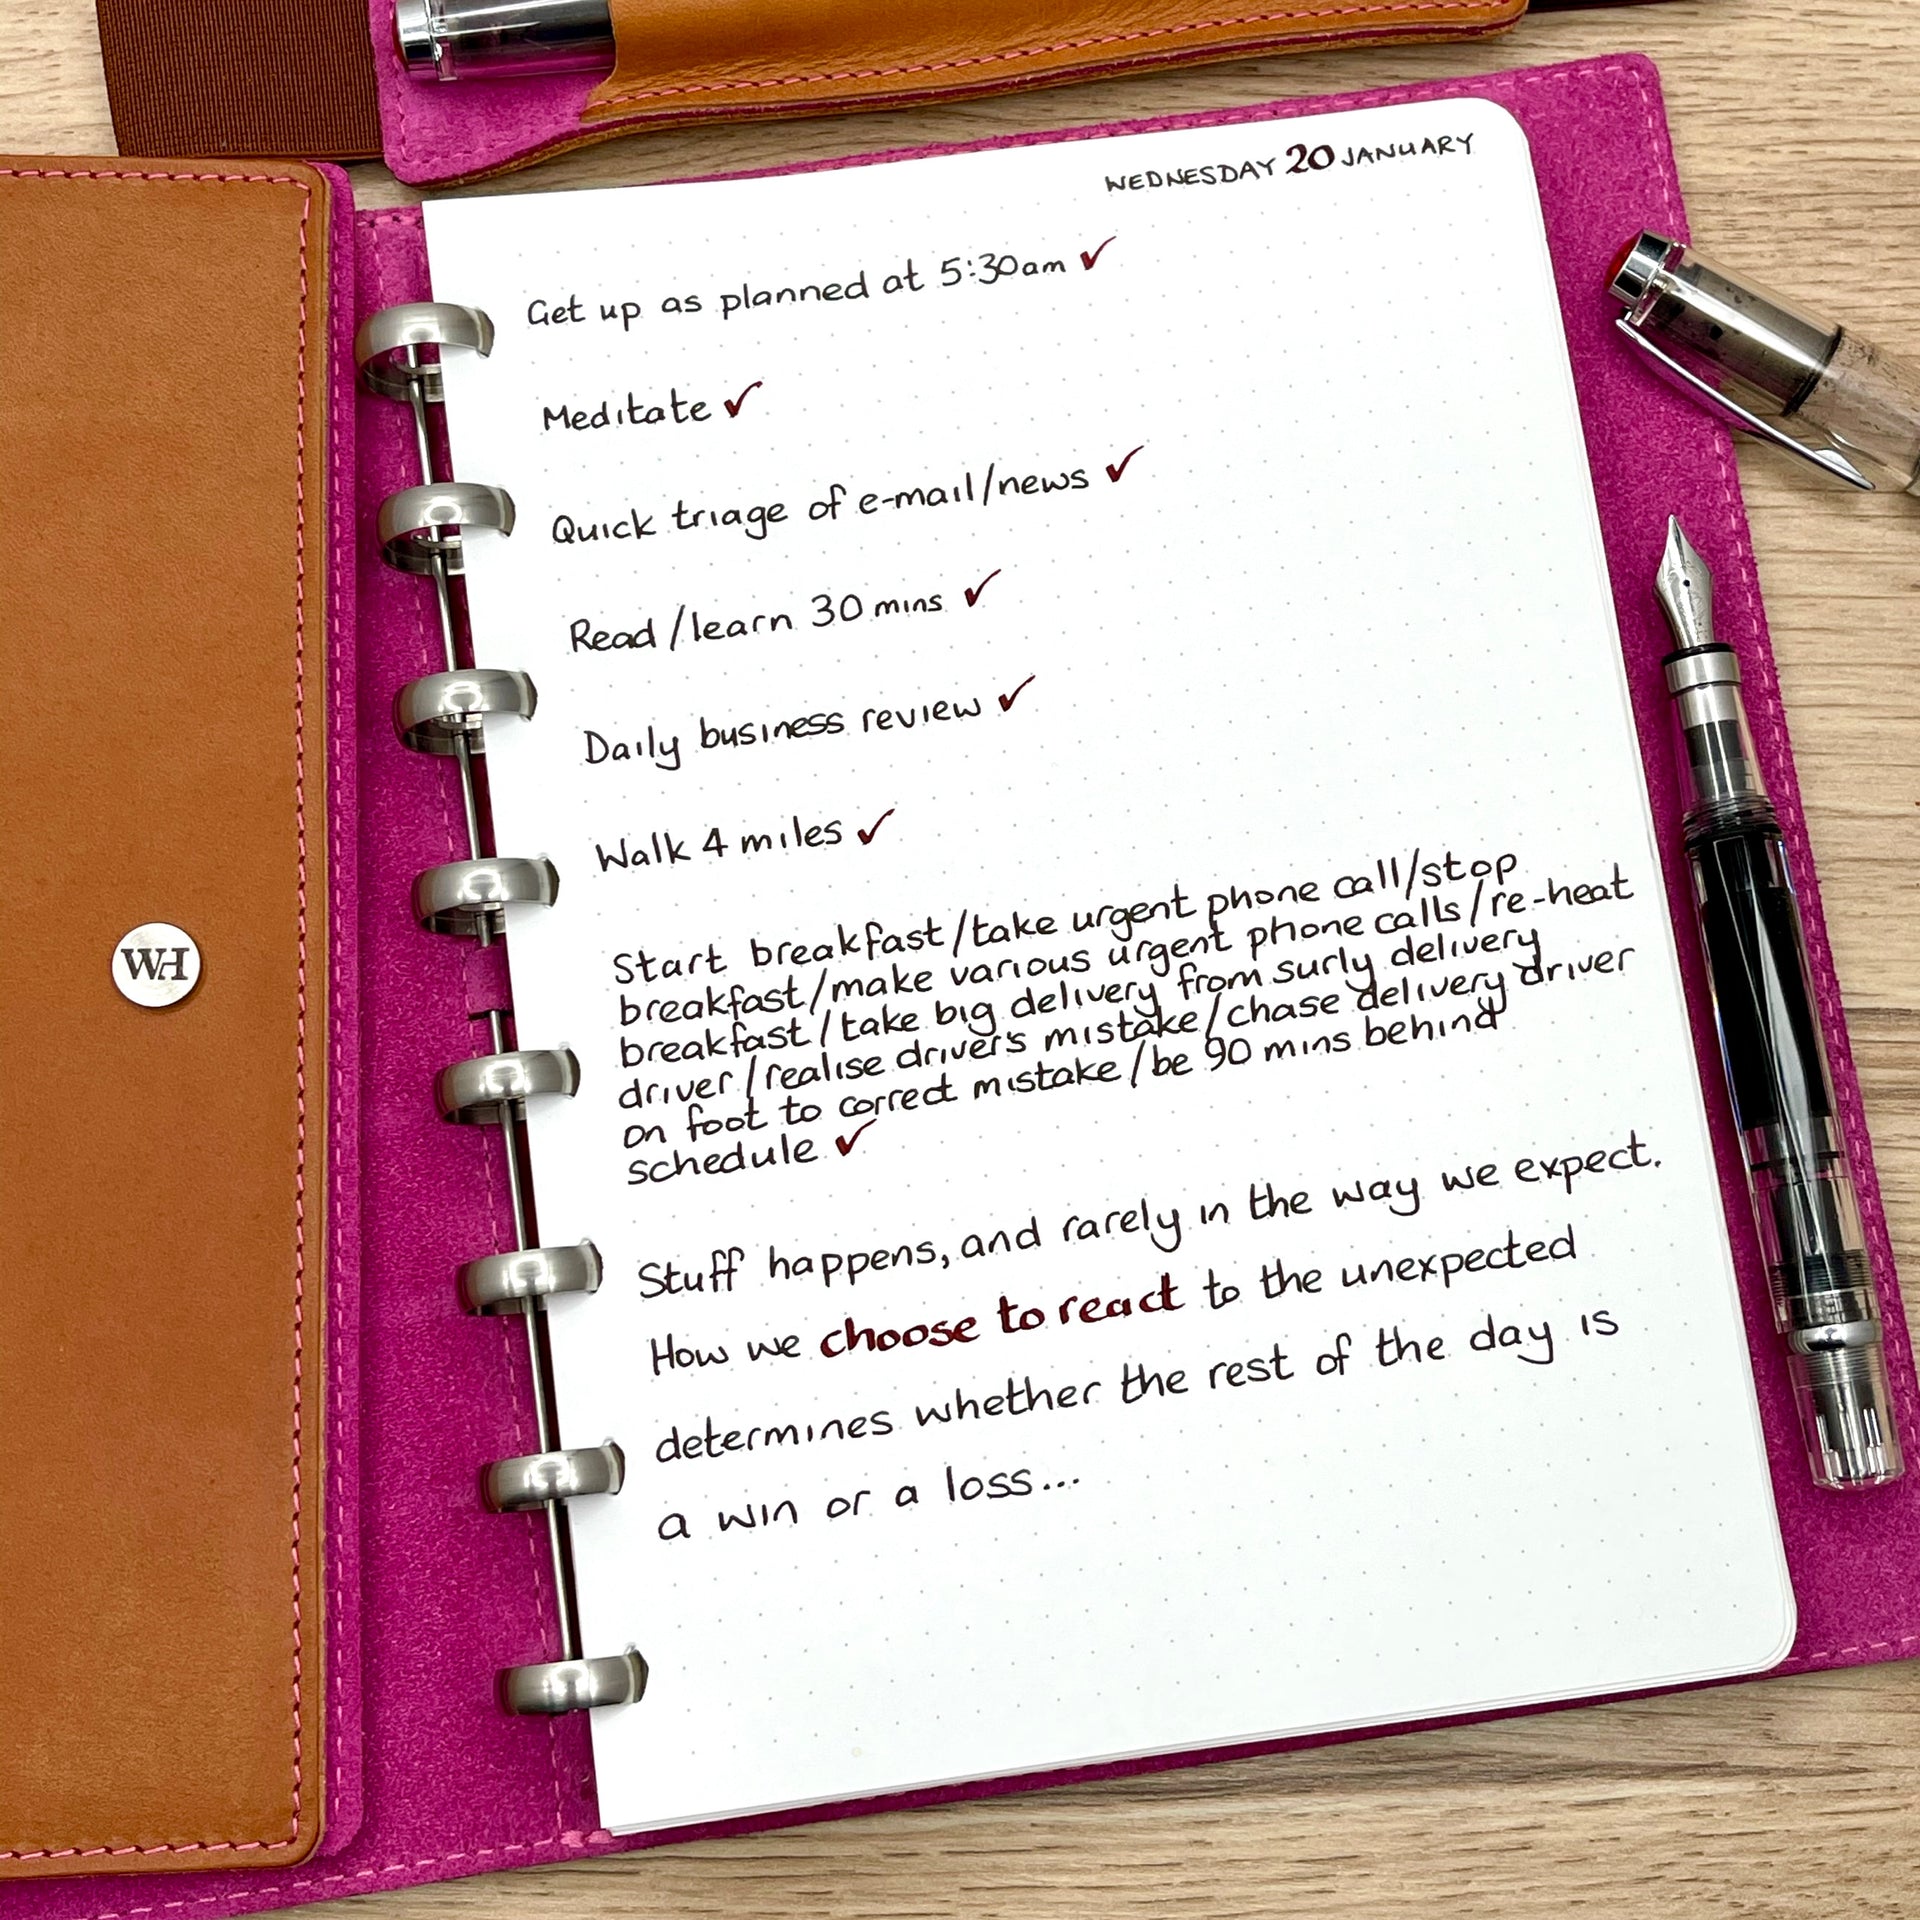 WEDNESDAY 20 JANUARY
Get up as planned at 5:30am ✓
Meditate ✓
Quick triage of e-mail/news ✓
Read/learn 30 mins ✓
Daily business review ✓
Walk 4 miles ✓
Start breakfast/take urgent phone call/stop
breakfast/make various urgent phone calls/re-heat
breakfast/take big delivery from surly delivery
driver/realise driver's mistake/chase delivery driver
on foot to correct mistake/be 90 mins behind
schedule ✓
Stuff happens, and rarely in the way we expect.
How we choose to react to the unexpected
determines whether the rest of the day is
a win or a loss...
WH